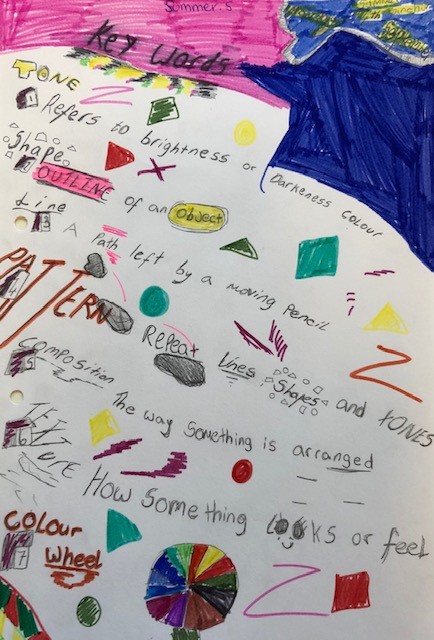 Summer.S
Key Words
TONE
1 Refers to brightness or Darkeness colour
Shape
2 OUTLINE of an object
Line
3 A Path left by a moving Pencil
PATTERN
4 REPEAT Lines, Shapes and tONES
Composition
5 The way Something is arranged
TEXTURE
6 How Something looks or feel
COLOUR
7 Wheel